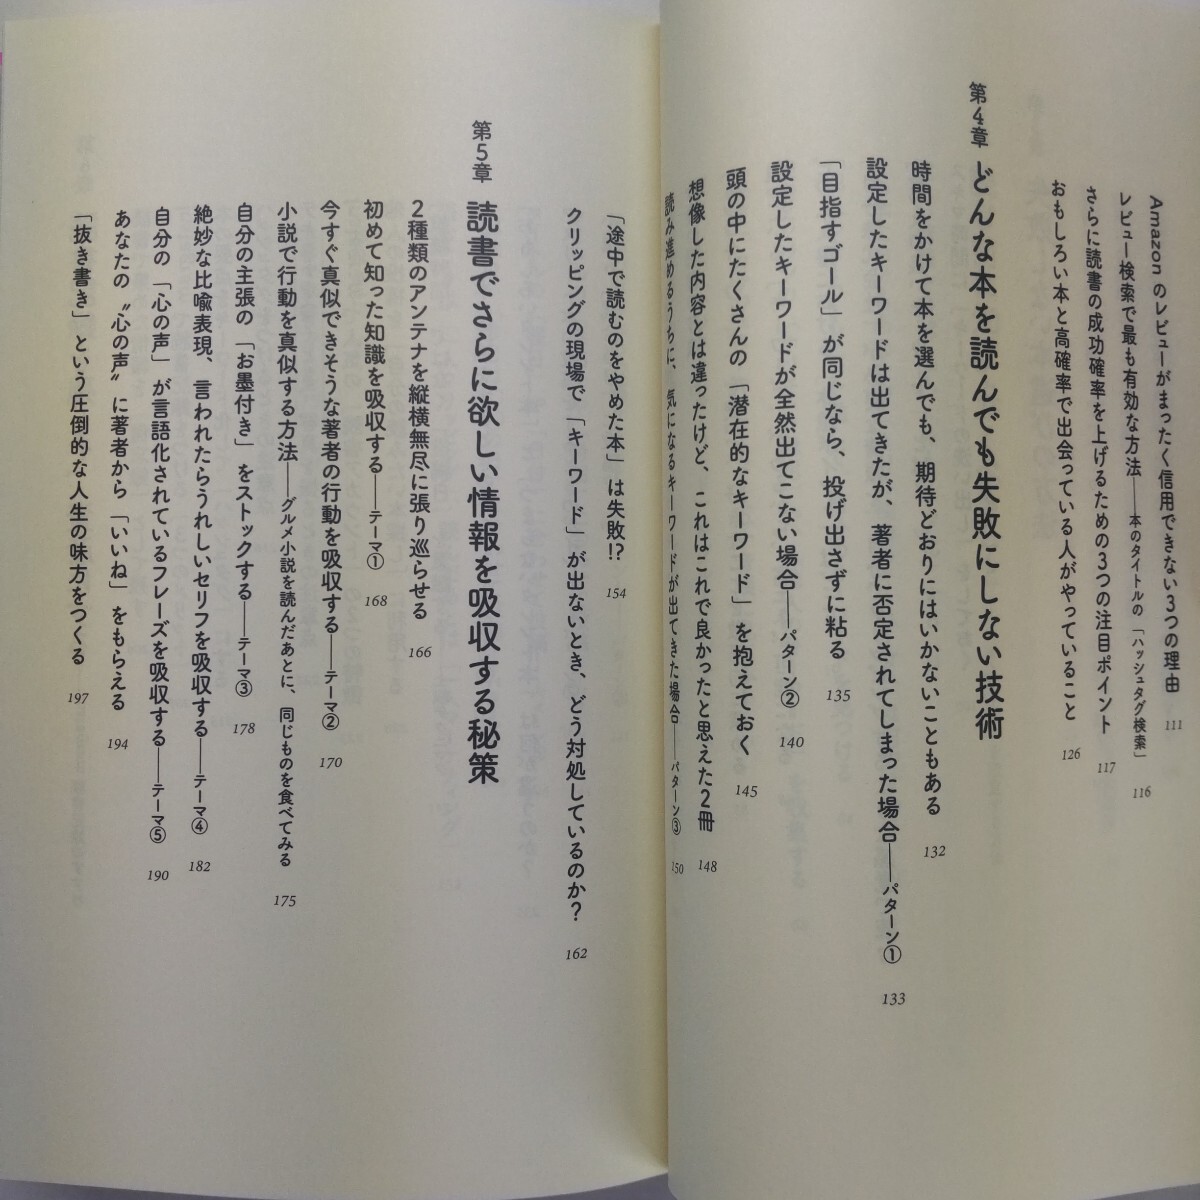 Amazonのレビューがまったく信用できない3つの理由 111
レビュー検索で最も有効な方法――本のタイトルの「ハッシュタグ検索」 116
さらに読書の成功確率を上げるための3つの注目ポイント 117
おもしろい本と高確率で出会っている人がやっていること 126
第4章 どんな本を読んでも失敗にしない技術
時間をかけて本を選んでも、期待どおりにはいかないこともある 132
設定したキーワードは出てきたが、著者に否定されてしまった場合――パターン① 133
「目指すゴール」が同じなら、投げ出さずに粘る 135
設定したキーワードが全然出てこない場合――パターン② 140
頭の中にたくさんの「潜在的なキーワード」を抱えておく 145
想像した内容とは違ったけど、これはこれで良かったと思えた2冊 148
読み進めるうちに、気になるキーワードが出てきた場合――パターン③ 150
「途中で読むのをやめた本」は失敗!? 154
クリッピングの現場で「キーワード」が出ないとき、どう対処しているのか? 162
第5章 読書でさらに欲しい情報を吸収する秘策
2種類のアンテナを縦横無尽に張り巡らせる 166
初めて知った知識を吸収する――テーマ① 168
今すぐ真似できそうな著者の行動を吸収する――テーマ② 170
小説で行動を真似する方法――グルメ小説を読んだあとに、同じものを食べてみる 175
自分の主張の「お墨付き」をストックする――テーマ③ 178
絶妙な比喩表現、言われたらうれしいセリフを吸収する――テーマ④ 182
自分の「心の声」が言語化されているフレーズを吸収する――テーマ⑤ 190
あなたの〝心の声〟に著者から「いいね」をもらえる 194
「抜き書き」という圧倒的な人生の味方をつくる 197